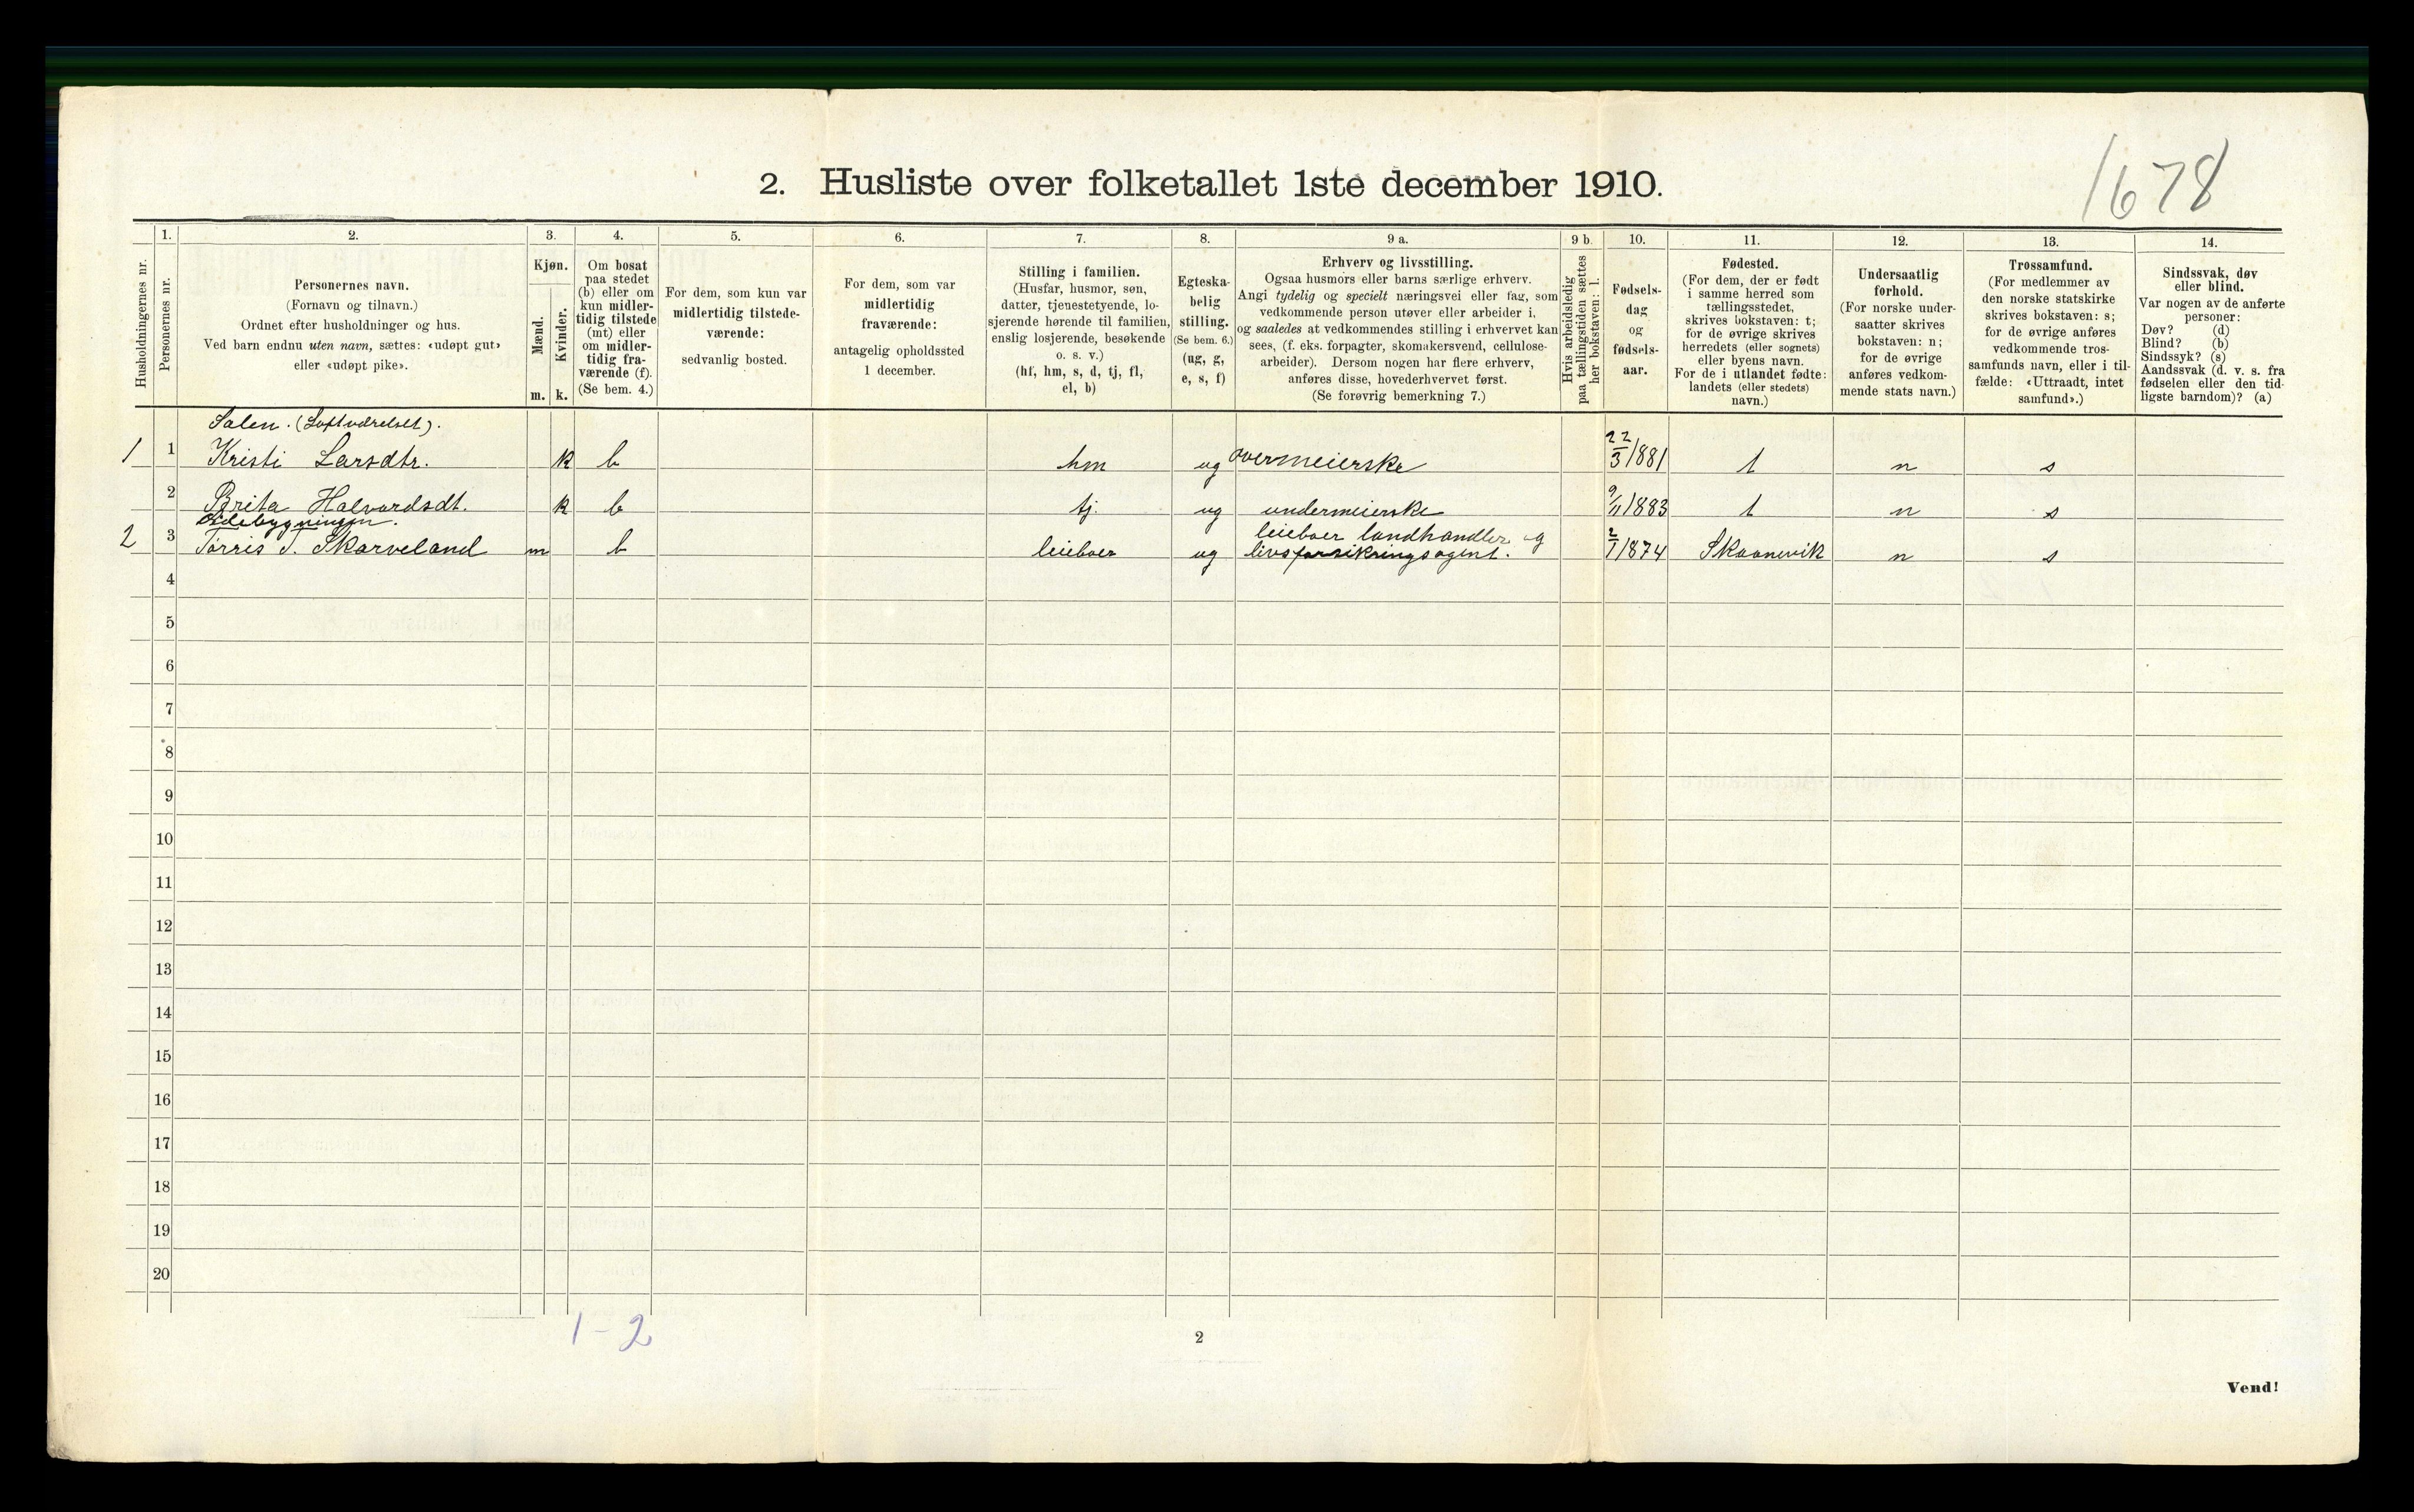 1678
2. Husliste over folketallet 1ste december 1910.
Husholdningernes nr.
1.
Personernes nr.
2.
Personernes navn.
(Fornavn og tilnavn.)
Ordnet efter husholdninger og hus.
Ved barn endnu uten navn, sættes: «udøpt gut»
eller «udøpt pike».
3.
Kjøn.
Mænd.
Kvinder.
m. k.
4.
Om bosat
paa stedet
(b) eller om
kun midler-
tidig tilstede
(mt) eller
om midler-
tidig fra-
værende (f).
(Se bem. 4.)
5.
For dem, som kun var
midlertidig tilstede-
værende:
sedvanlig bosted.
6.
For dem, som var
midlertidig
fraværende:
antagelig opholdssted
1 december.
7.
Stilling i familien.
(Husfar, husmor, søn,
datter, tjenestetyende, lo-
sjerende hørende til familien,
enslig losjerende, besøkende
o. s. v.)
(hf, hm, s, d, tj, fl,
el, b)
8.
Egteska-
belig
stilling.
(Se bem. 6.)
(ug, g,
e, s, f)
9 a.
Erhverv og livsstilling.
Ogsaa husmors eller barns særlige erhverv.
Angi tydelig og specielt næringsvei eller fag, som
vedkommende person utøver eller arbeider i,
og saaledes at vedkommendes stilling i erhvervet kan
sees, (f. eks. forpagter, skomakersvend, cellulose-
arbeider). Dersom nogen har flere erhverv,
anføres disse, hovederhvervet først.
(Se forøvrig bemerkning 7.)
9 b.
Hvis arbeidsledig
paa tællingstiden sættes
her bokstaven: l.
10.
Fødsels-
dag
og
fødsels-
aar.
11.
Fødested.
(For dem, der er født
i samme herred som
tællingsstedet,
skrives bokstaven: t;
for de øvrige skrives
herredets (eller sognets)
eller byens navn.
For de i utlandet fødte:
landets (eller stedets)
navn.)
12.
Undersaatlig
forhold.
(For norske under-
saatter skrives
bokstaven: n;
for de øvrige
anføres vedkom-
mende stats navn.)
13.
Trossamfund.
(For medlemmer av
den norske statskirke
skrives bokstaven: s;
for de øvrige anføres
vedkommende tros-
samfunds navn, eller i til-
fælde: «Uttraadt, intet
samfund».)
14.
Sindssvak, døv
eller blind.
Var nogen av de anførte
personer:
Døv? (d)
Blind? (b)
Sindssyk? (s)
Aandssvak (d. v. s. fra
fødselen eller den tid-
ligste barndom)? (a)
Salen. (Loftværelset).
1 1 Kristi Larsdtr. k b hm ug overmeierske 22/3 1881 t n s
2 Brita Halvardsdt. k b tj. ug undermeierske 9/11 1883 t n s
Sidebygningen.
leieboer landhandler og
2 3 Tørris T. Skarveland m b leieboer ug livsforsikringsagent. 2/1 1874 Skaanevik n s
4
5
6
7
8
9
10
11
12
13
14
15
16
17
18
19
20
1-2
2
Vend!